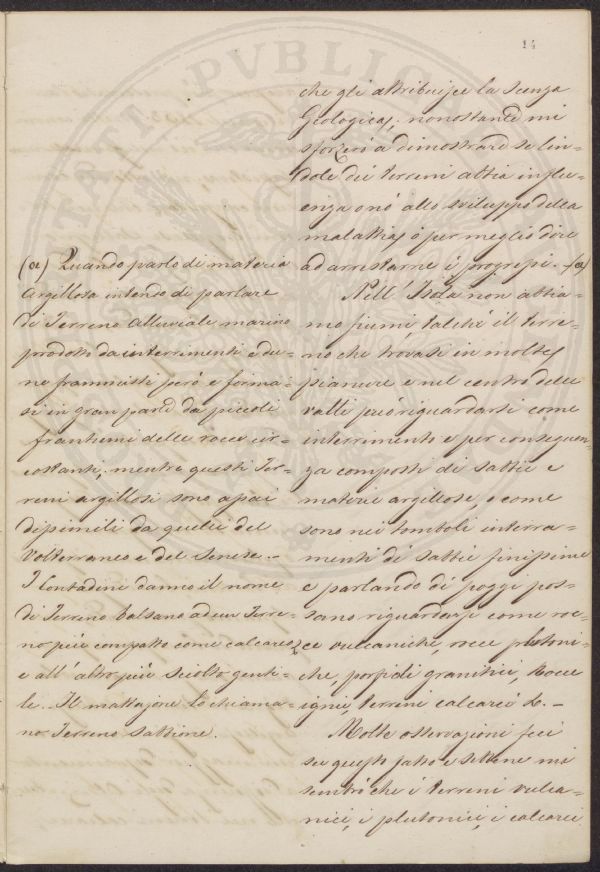 14
che gli attribuisce la Scenza
Geologica; nonostante mi
sforzerò a dimostrare se l'in-
dole dei terreni abbia influ-
enza o nò allo sviluppo della
malattia, ò per meglio dire
ad arrestarne i progressi. (a)
Nell' Isola non abbia-
mo fiumi, talchè il terre-
no che trovasi in molte
pianure e nel centro delle
valli può riguardarsi come
interrimento e per conseguen-
za composti di sabbie e
materie argillose, o come
sono nei tomboli interra-
menti di sabbie finissime
e parlando di poggi pos-
sano riguardarsi come roc-
ce vulcaniche, rocce plutoni-
che, porfidi granitici, Rocce
ignee, terrini calcarei &. -
Molte osservazioni feci
su questo fatto e sebbene mi
sembrò che i terreni vulca-
nici, i plutonici, i calcarei
(a) Quando parlo di materia
Argillosa intendo di parlare
di Terreno Alluviale marino
prodotto da interrimenti e du-
ne frammisti però e forma-
si in gran parte da piccoli
frantumi delle rocce cir-
costanti, mentre questi Ter-
reni argillosi sono assai
dissimili da quelli del
Volterraneo e del Senese. -
I Contadini danno il nome
di Terreno balsano ad un Terre-
no più compatto come calcare
e all' altro più sciolto genti-
le. Il mattajone lo chiama-
no Terreno sabbione.